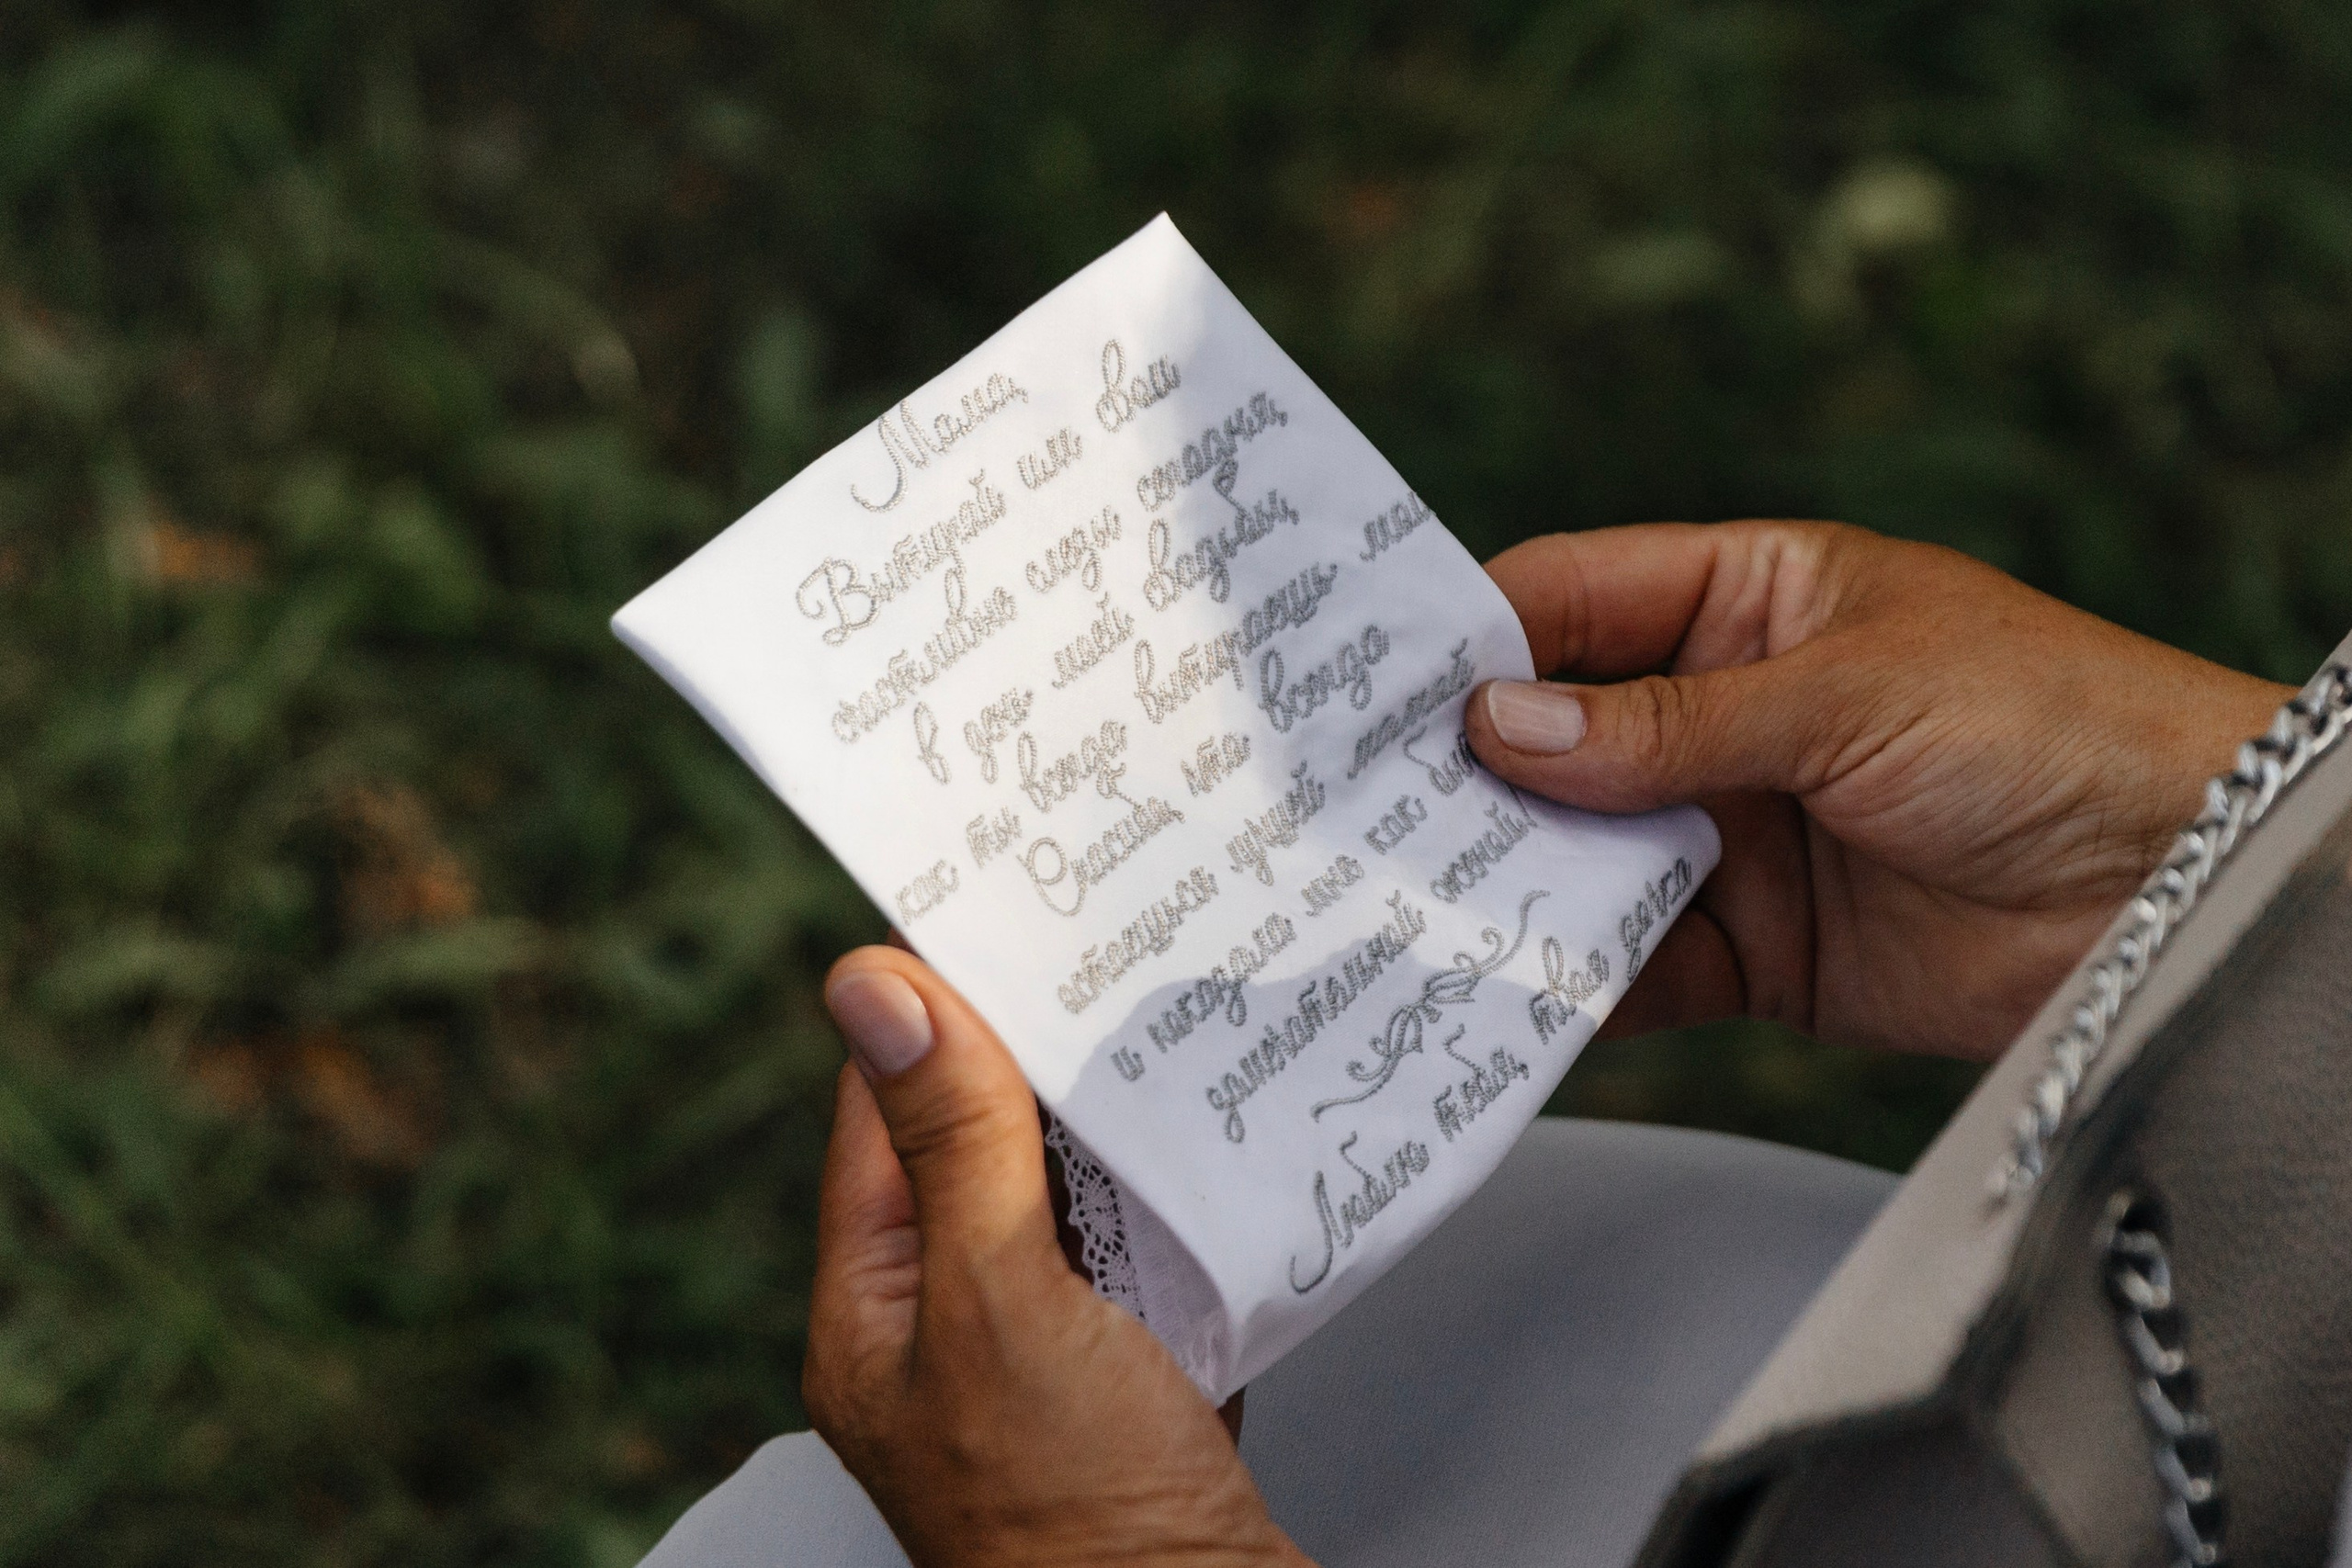 Мама,
Вытирай им ваш
счастливые слезы сегодня,
в день моей свадьбы,
как ты всегда вытираешь мои
Спасибо, что всегда
остаешься лучшей мамой
и показала мне как быть
замечательной женой!
Люблю тебя, твоя дочка